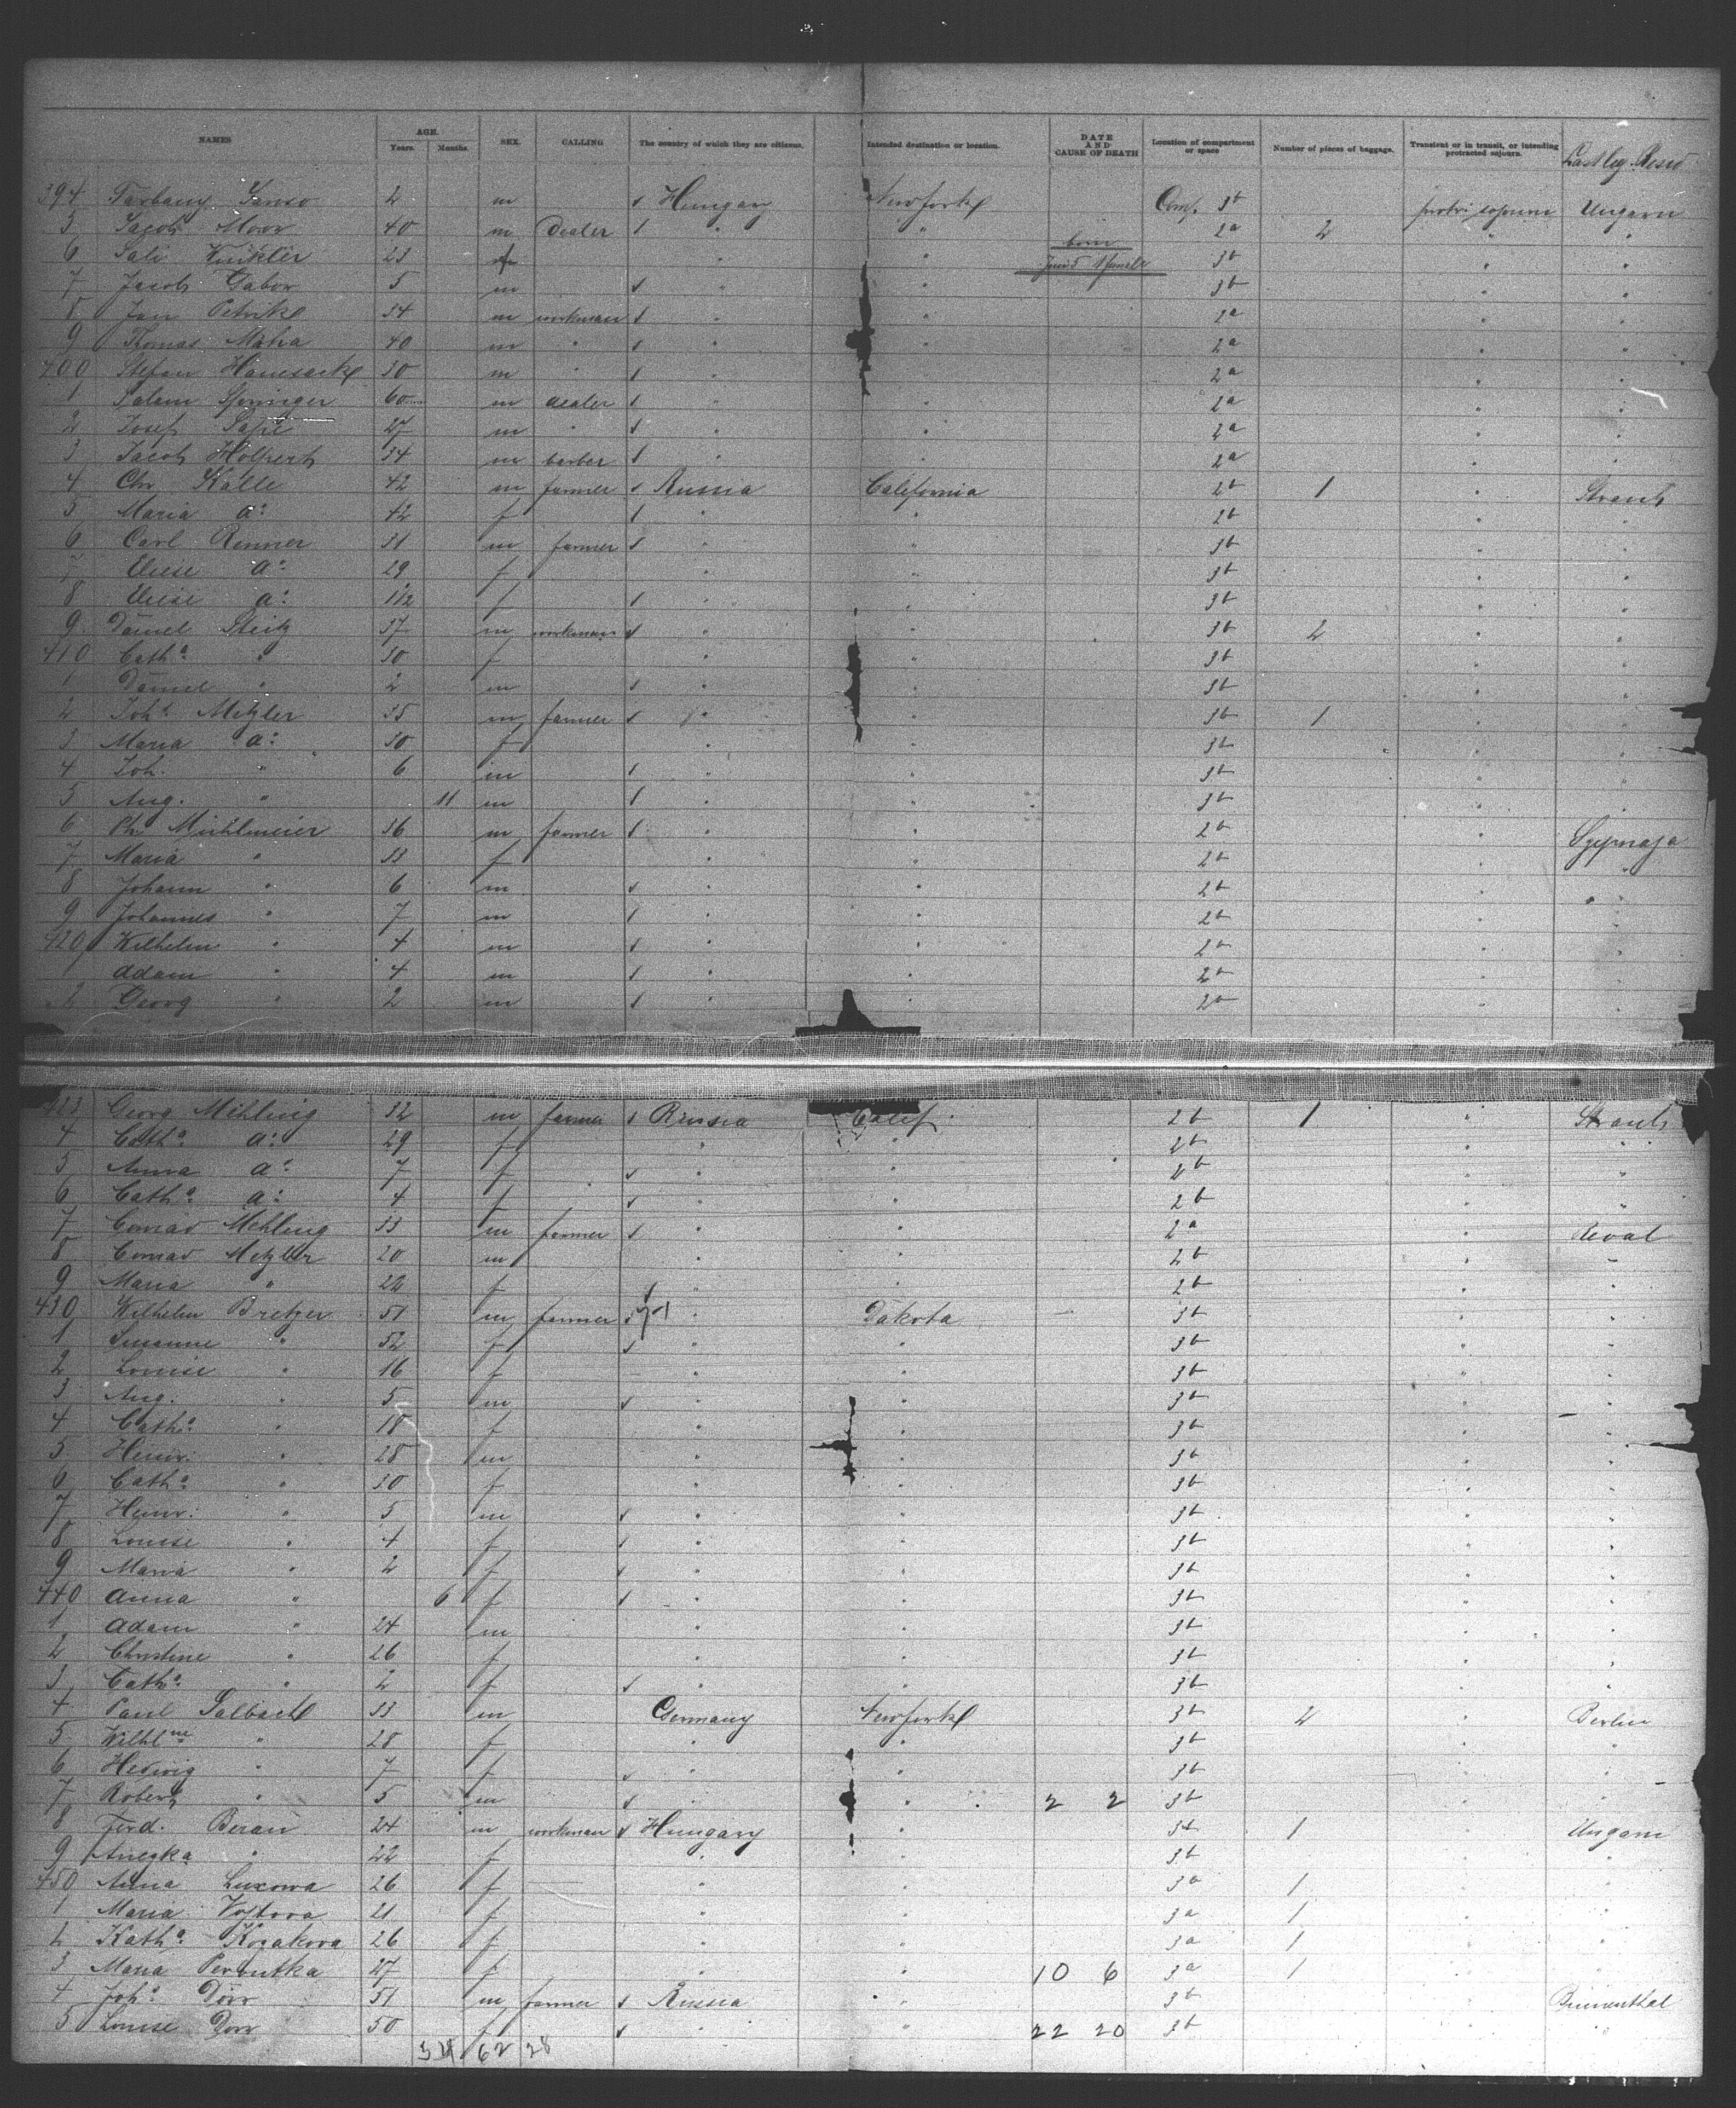 NAMES AGE. Years. Months. SEX. CALLING The country of which they are citizens. Intended destination or location. DATE AND CAUSE OF DEATH Location of compartment or space Number of pieces of baggage. Transient or in transit, or intending protracted sojourn. Last leg. Resid
394 m Hungary New York Comp. 3b Ungarn
5 Jacob Moor 40 m dealer " " 2a 2 " "
6 Sali Winkler 23 f " " born 3b " "
7 Jacob Gabor 5 m " " 3b " "
8 Jan Petrik 34 m workman " " 2a " "
9 Thomas Maha 40 m " " " 2a " "
400 Stefan 30 m " " " 2a " "
1 60 m dealer " " 2a " "
2 Josef 27 m " " " 2a " "
3 Jacob 34 m barber " " 2a " "
4 Chr Kalle 42 m farmer Russia California 2b 1 " Straub
5 Maria do 42 f " " 2b " "
6 Carl Renner 31 m farmer " " 3b " "
7 Eliese do 29 f " " 3b " "
8 Eliese do 1 1/2 f " " 3b " "
9 Daniel Steitz 37 m workman " " 3b 2 " "
410 Catha " 30 f " " 3b " "
1 Daniel " 2 m " " 3b " "
2 Joh. Metzler 35 m farmer " " 3b 1 " "
3 Maria do 30 f " " 3b " "
4 Joh. " 6 m " " 3b " "
5 Aug. " 11 m " " 3b " "
6 Ph. Mühlmeier 36 m farmer " " 2b "
7 Maria " 33 f " " 2b " "
8 Johann " 6 m " " 2b " "
9 Johannes " 7 m " " 2b " "
420 Wilhelm " 4 m " " 2b " "
1 Adam " 4 m " " 2b " "
2 Georg " 2 m " " 2b " "
423 Georg Mehling 32 m farmer Russia Calif. 2b 1 " Straub
4 Catha do 29 f " " 2b " "
5 Anna do 7 f " " 2b " "
6 Catha do 4 f " " 2b " "
7 Conrad Mehling 33 m farmer " " 2a "
8 Conrad Metzler 20 m " " 2b " "
9 Maria " 22 f " " 2b " "
430 Wilhelm Bretzer 51 m farmer " Dakota 3b " "
1 Susanne " 52 f " " 3b " "
2 Louise " 16 f " " 3b " "
3 Aug. " 5 m " " 3b " "
4 Catha " 18 f " " 3b " "
5 Heinr. " 28 m " " 3b " "
6 Catha " 30 f " " 3b " "
7 Heinr. " 5 m " " 3b " "
8 Louise " 4 f " " 3b " "
9 Maria " 2 f " " 3b " "
440 Anna " 6 f " " 3b " "
1 Adam " 24 m " " 3b " "
2 Christine " 26 f " " 3b " "
3 Catha " 2 f " " 3b " "
4 Paul Salbach 33 m Germany New York 3b 2 " Berlin
5 Wilhlme " 28 f " " 3b " "
6 Hedwig " 7 f " " 3b " "
7 Robert " 5 m " " 2 2 3b " "
8 Ferd. Beran 24 m workman Hungary " 3b 1 " Ungarn
9 Anegka " 22 f " " 3b " "
450 Anna Luxowa 26 f " " 3a 1 " "
1 Maria Vojtova 21 f " " 3a 1 " "
2 Katha Kozakova 26 f " " 3a 1 " "
3 Maria Peroutka 27 f " " 10 6 3a 1 " "
4 Joh. Dörr 51 m farmer Russia " 3b Brienenthal
5 Louise Dörr 50 f " " 22 20 3b "
62 28